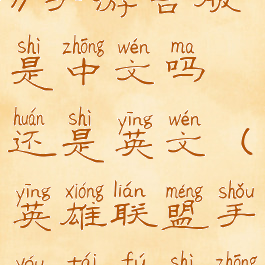 游
shì zhōng wén ma
是中文吗
huán shì yīng wén
还是英文(
yīng xióng lián méng shǒu
英雄联盟手
yóu tái fú shì zhōng